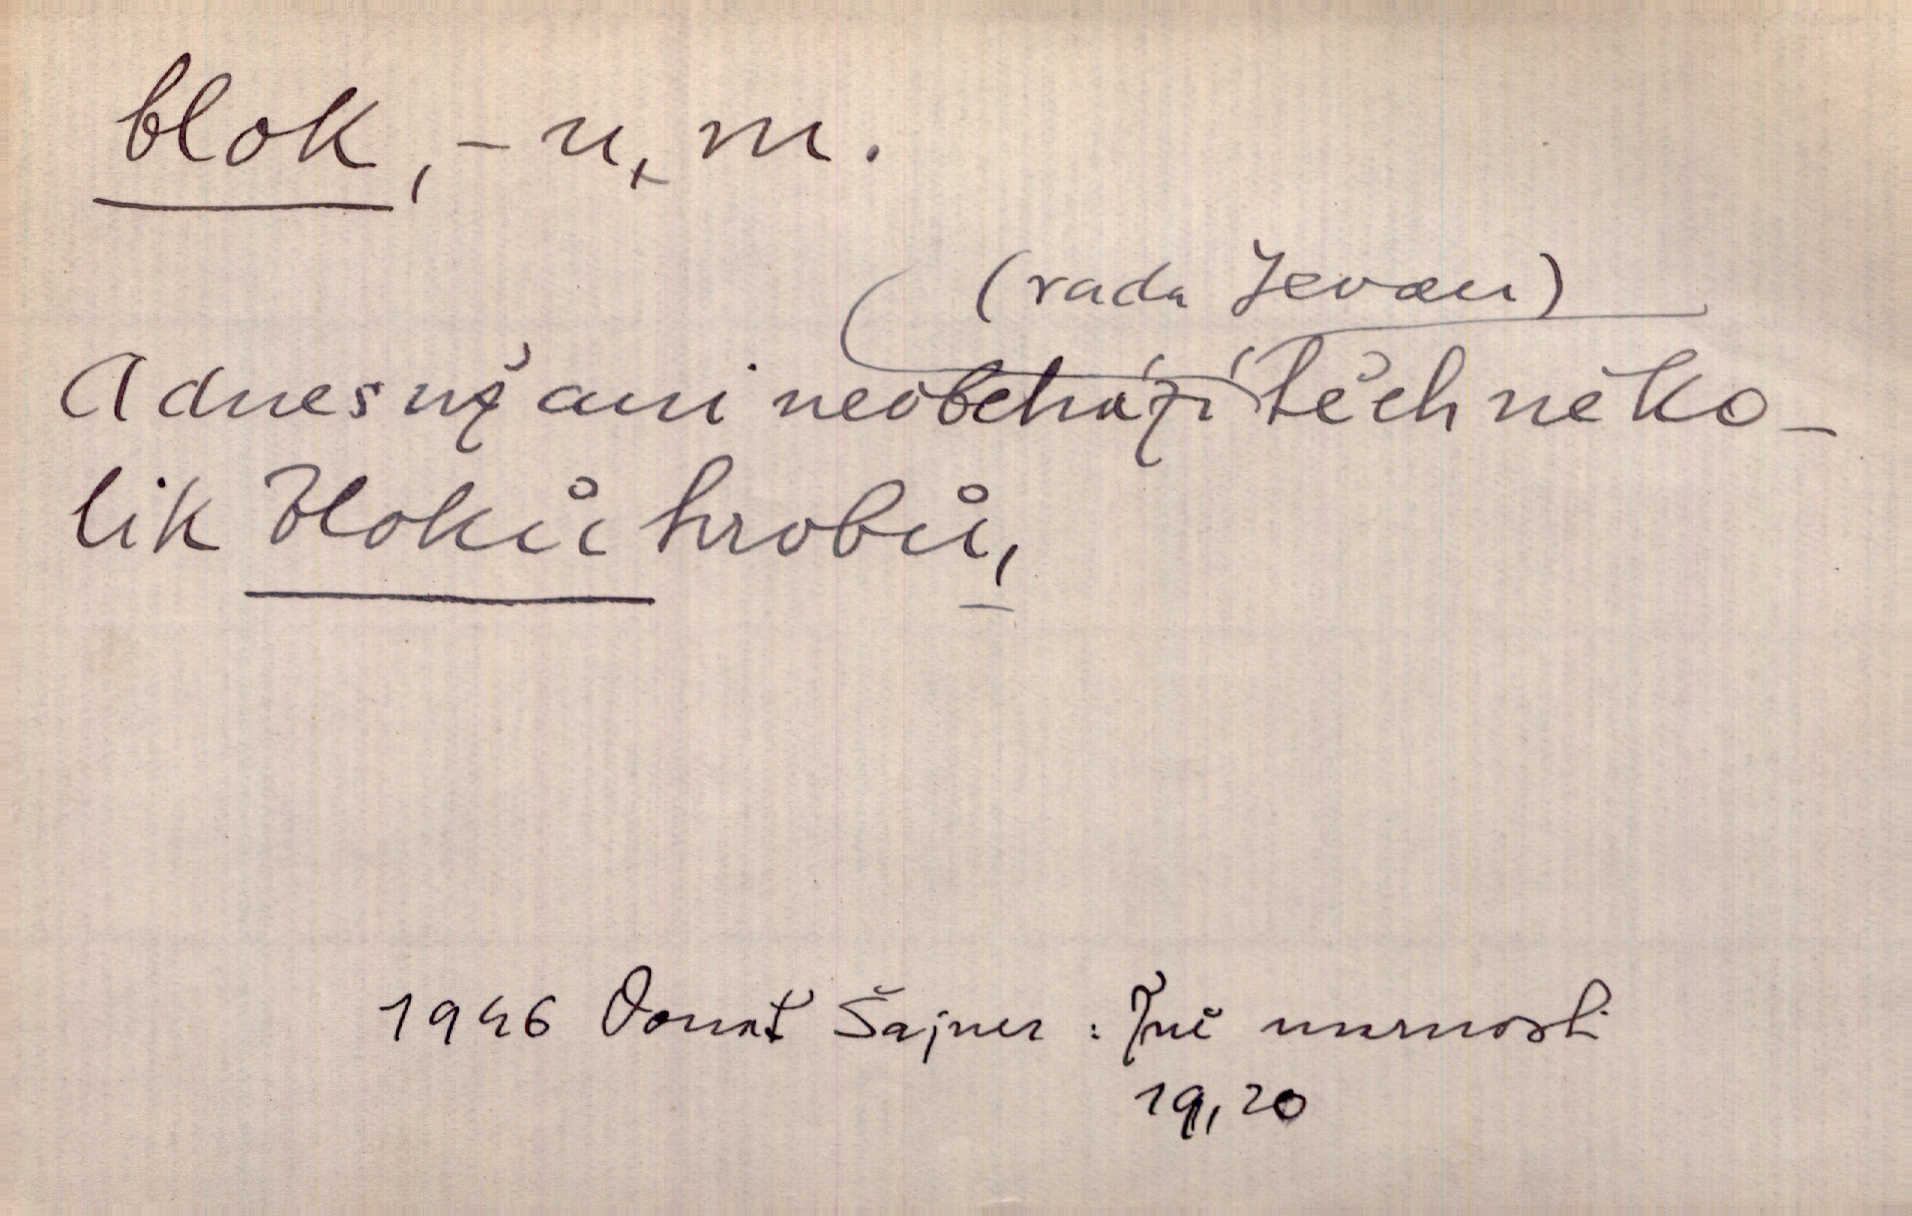 blok, -u, m.
(rada Jevan)
A dnes už ani neobchází těch něko-
lik bloků hrobů,
1946 Donát Šajner : Žně marnosti
19, 20